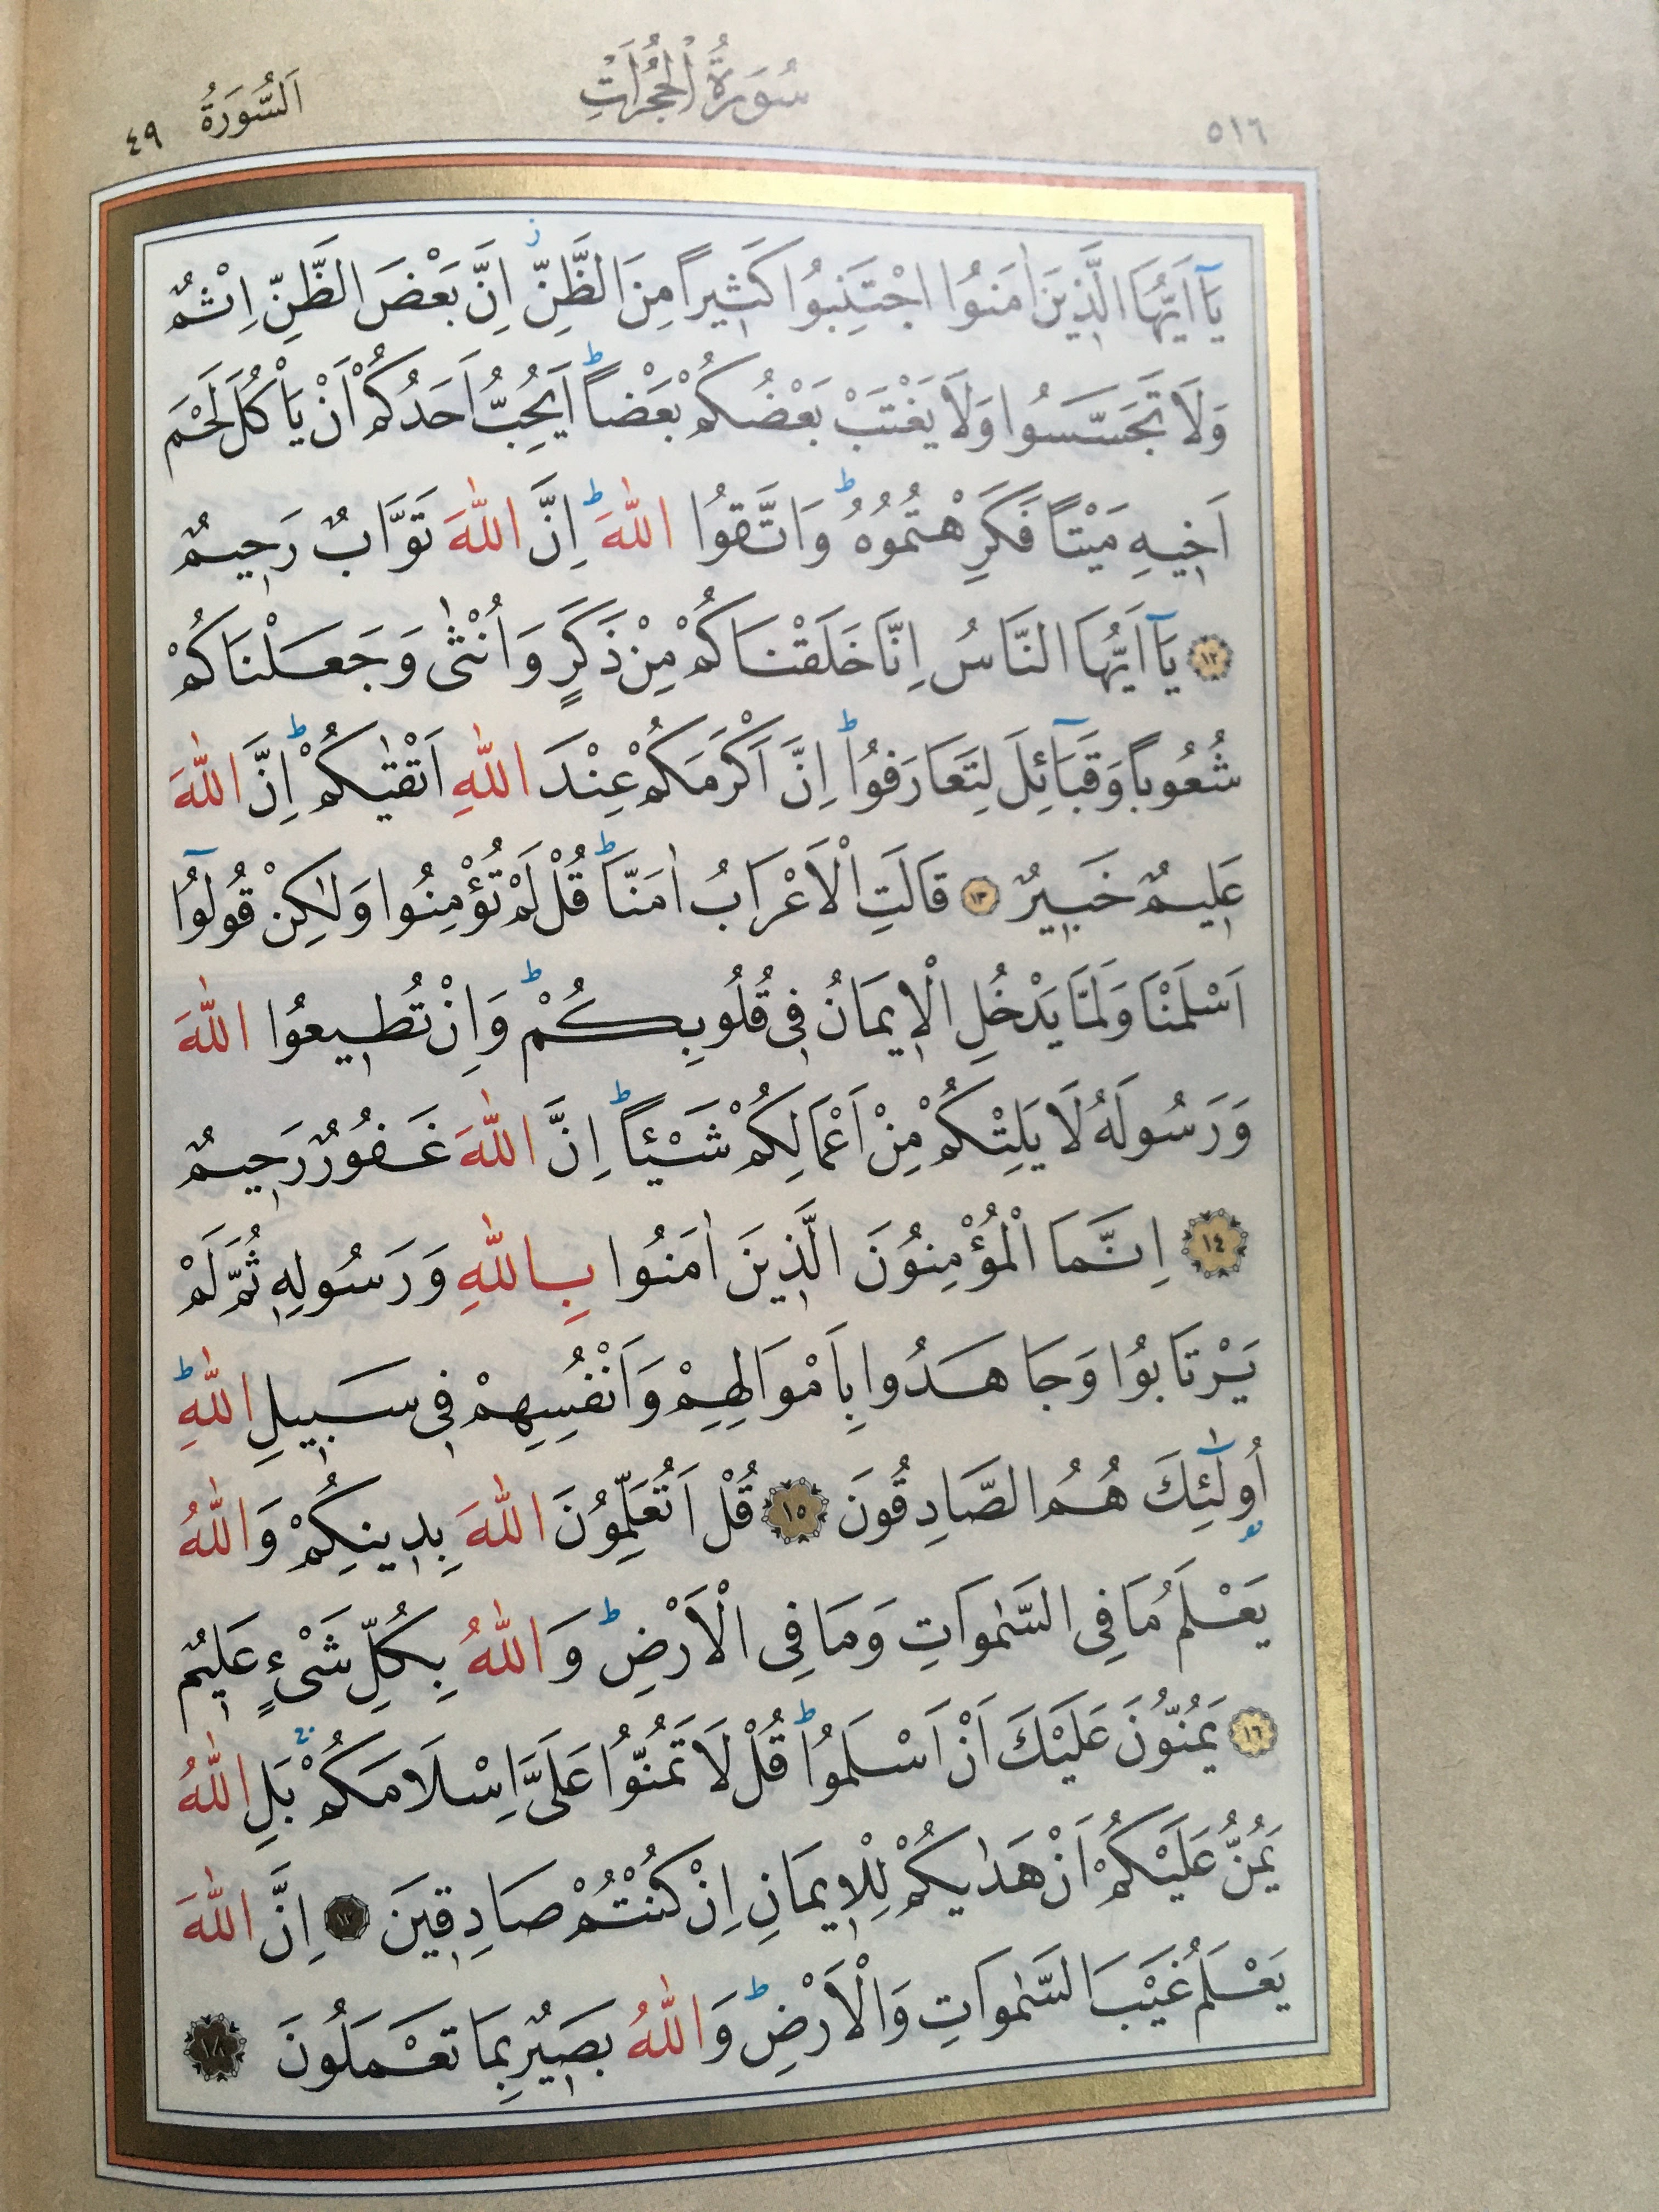 ٥١٦ سُورَةُ الْحُجُرَاتِ اَلسُّورَةُ ٤٩
يَٓا اَيُّهَا الَّذ۪ينَ اٰمَنُوا اجْتَنِبُوا كَث۪يراً مِنَ الظَّنِّۘ اِنَّ بَعْضَ الظَّنِّ اِثْمٌ
وَلَا تَجَسَّسُوا وَلَا يَغْتَبْ بَعْضُكُمْ بَعْضاًؕ اَيُحِبُّ اَحَدُكُمْ اَنْ يَاْكُلَ لَحْمَ
اَخ۪يهِ مَيْتاً فَكَرِهْتُمُوهُؕ وَاتَّقُوا اللّٰهَؕ اِنَّ اللّٰهَ تَوَّابٌ رَح۪يمٌ
١٢ يَٓا اَيُّهَا النَّاسُ اِنَّا خَلَقْنَاكُمْ مِنْ ذَكَرٍ وَاُنْثٰى وَجَعَلْنَاكُمْ
شُعُوباً وَقَبَٓائِلَ لِتَعَارَفُواؕ اِنَّ اَكْرَمَكُمْ عِنْدَ اللّٰهِ اَتْقٰيكُمْؕ اِنَّ اللّٰهَ
عَل۪يمٌ خَب۪يرٌ ١٣ قَالَتِ الْاَعْرَابُ اٰمَنَّاؕ قُلْ لَمْ تُؤْمِنُوا وَلٰكِنْ قُولُٓوا
اَسْلَمْنَا وَلَمَّا يَدْخُلِ الْا۪يمَانُ ف۪ي قُلُوبِكُمْؕ وَاِنْ تُط۪يعُوا اللّٰهَ
وَرَسُولَهُ لَا يَلِتْكُمْ مِنْ اَعْمَالِكُمْ شَيْـٔاًؕ اِنَّ اللّٰهَ غَفُورٌ رَح۪يمٌ
١٤ اِنَّمَا الْمُؤْمِنُونَ الَّذ۪ينَ اٰمَنُوا بِاللّٰهِ وَرَسُولِه۪ ثُمَّ لَمْ
يَرْتَابُوا وَجَاهَدُوا بِاَمْوَالِهِمْ وَاَنْفُسِهِمْ ف۪ي سَب۪يلِ اللّٰهِؕ
اُو۬لٰٓئِكَ هُمُ الصَّادِقُونَ ١٥ قُلْ اَتُعَلِّمُونَ اللّٰهَ بِد۪ينِكُمْ وَاللّٰهُ
يَعْلَمُ مَا فِي السَّمٰوَاتِ وَمَا فِي الْاَرْضِؕ وَاللّٰهُ بِكُلِّ شَيْءٍ عَل۪يمٌ
١٦ يَمُنُّونَ عَلَيْكَ اَنْ اَسْلَمُواؕ قُلْ لَا تَمُنُّوا عَلَيَّ اِسْلَامَكُمْۚ بَلِ اللّٰهُ
يَمُنُّ عَلَيْكُمْ اَنْ هَدٰيكُمْ لِلْا۪يمَانِ اِنْ كُنْتُمْ صَادِق۪ينَ ١٧ اِنَّ اللّٰهَ
يَعْلَمُ غَيْبَ السَّمٰوَاتِ وَالْاَرْضِؕ وَاللّٰهُ بَص۪يرٌ بِمَا تَعْمَلُونَ ١٨